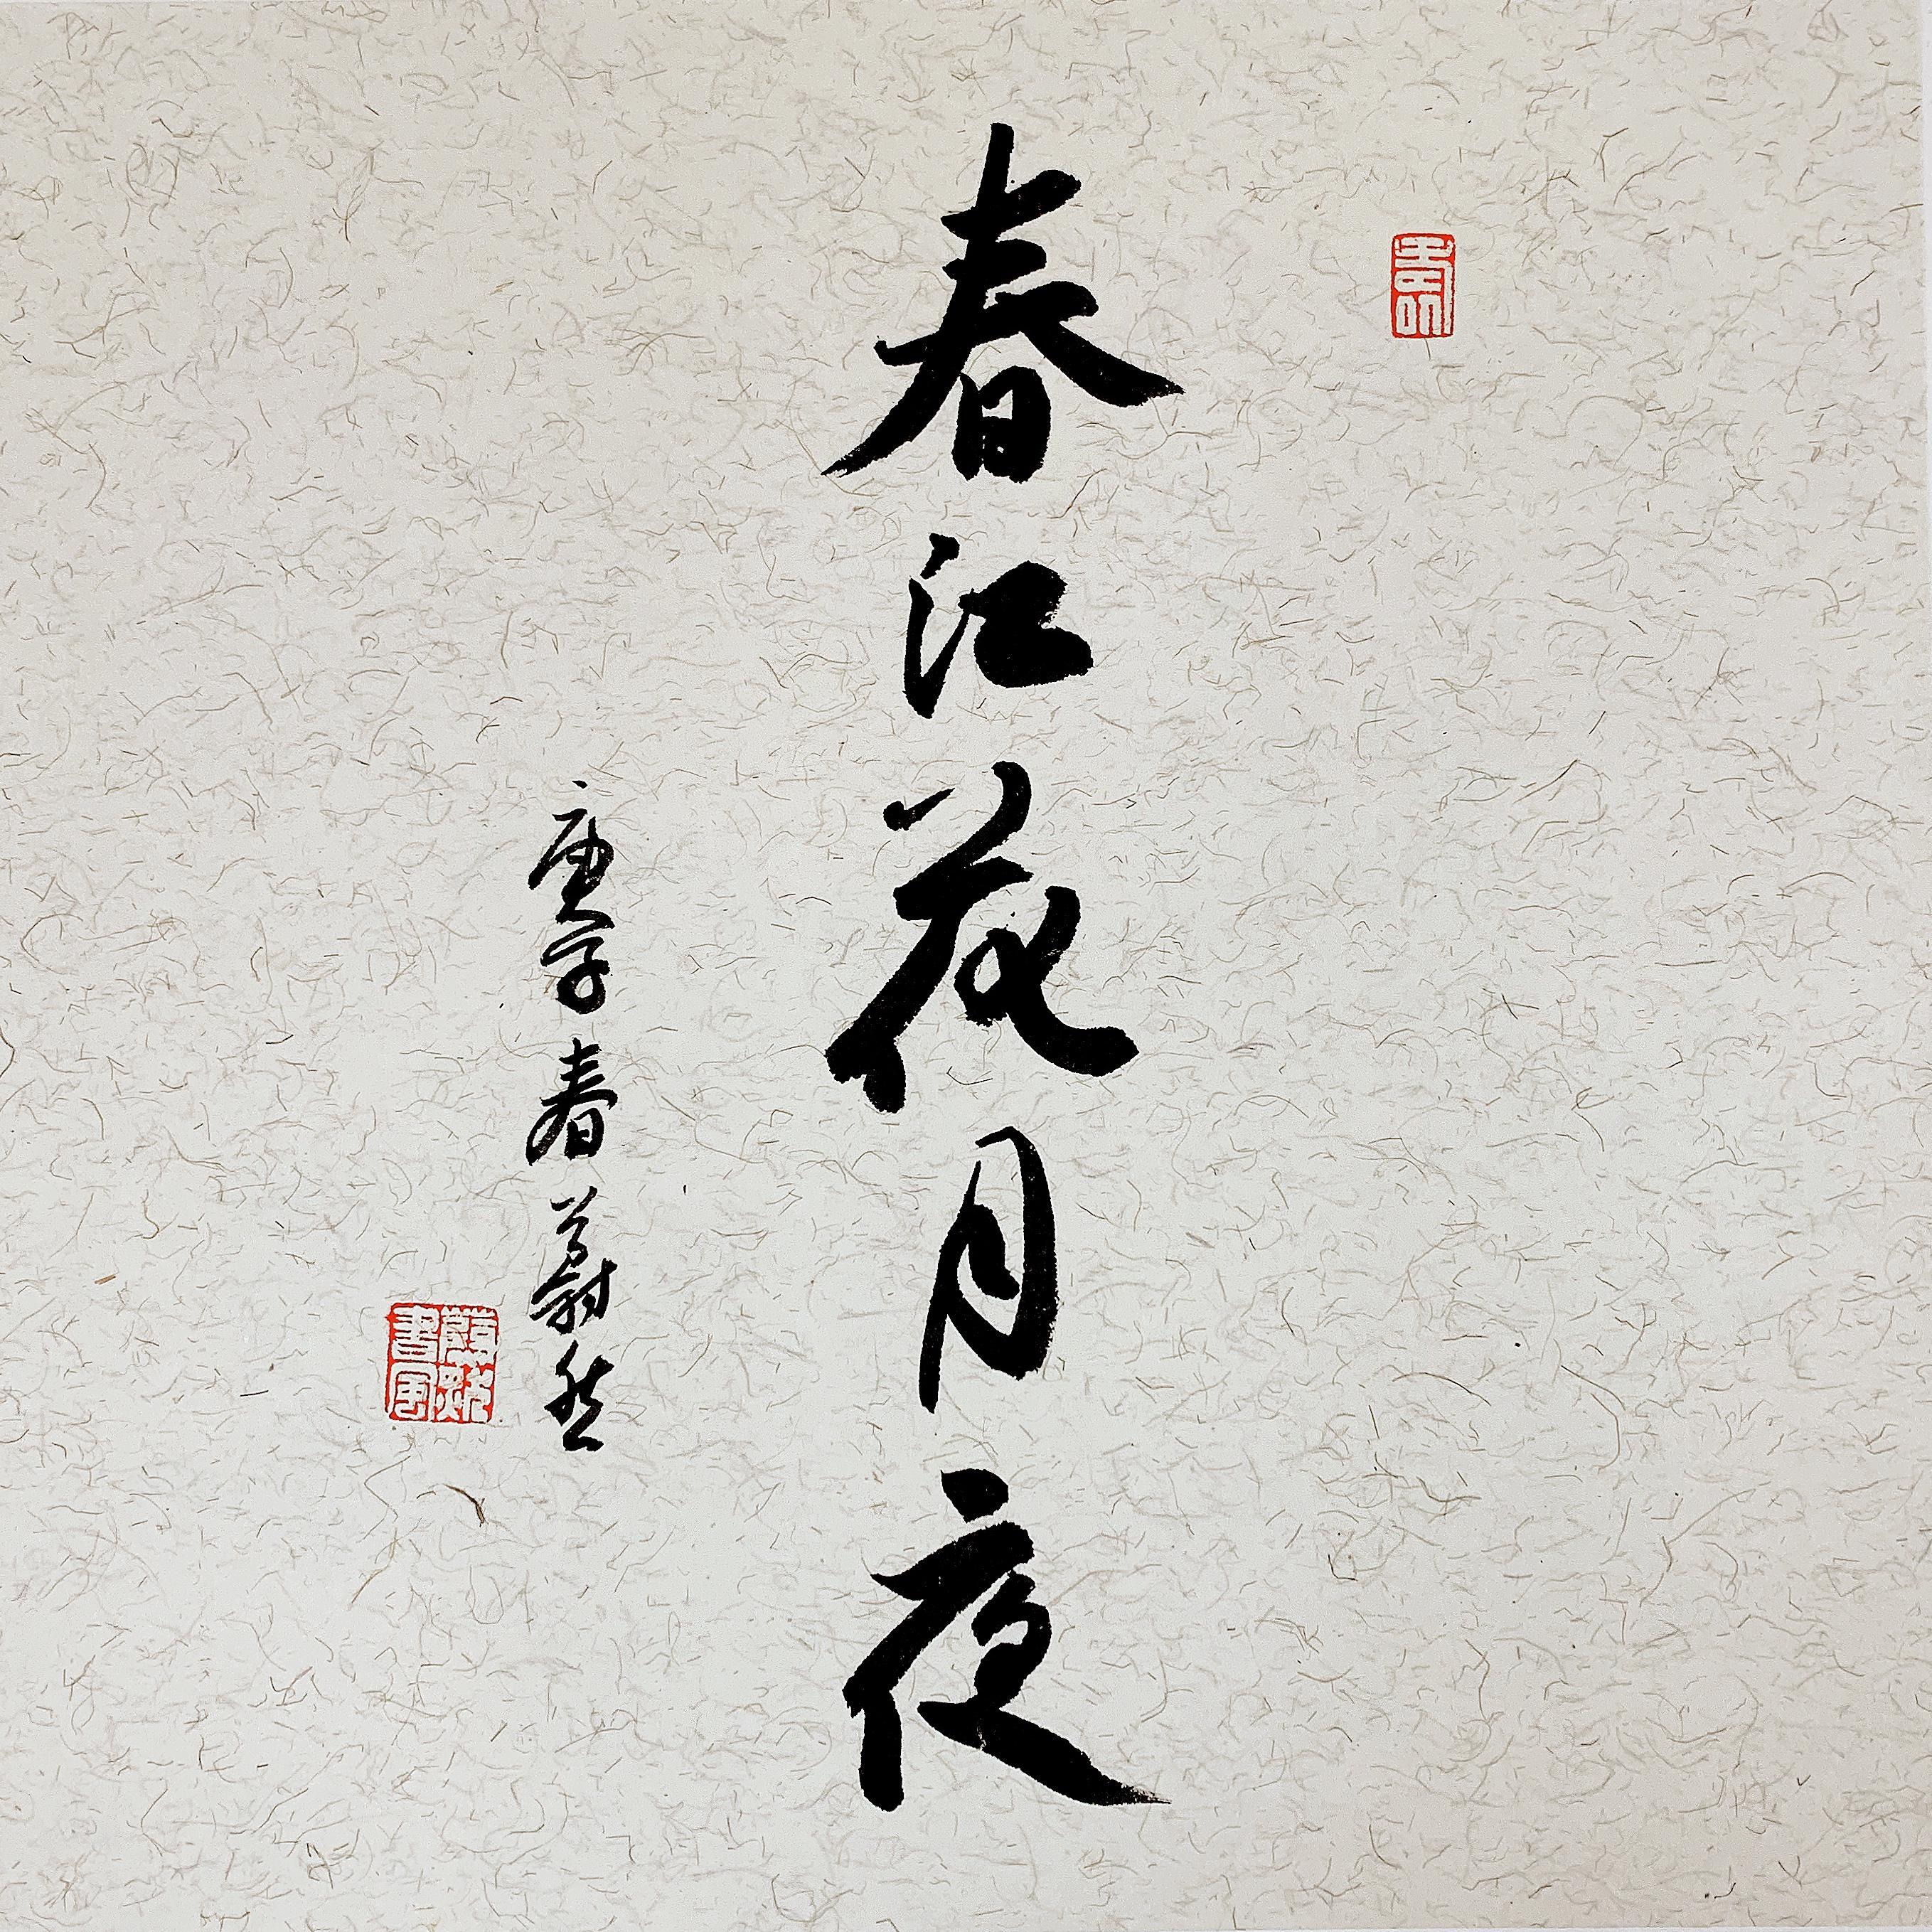 春江花月夜
庚子春蔚然